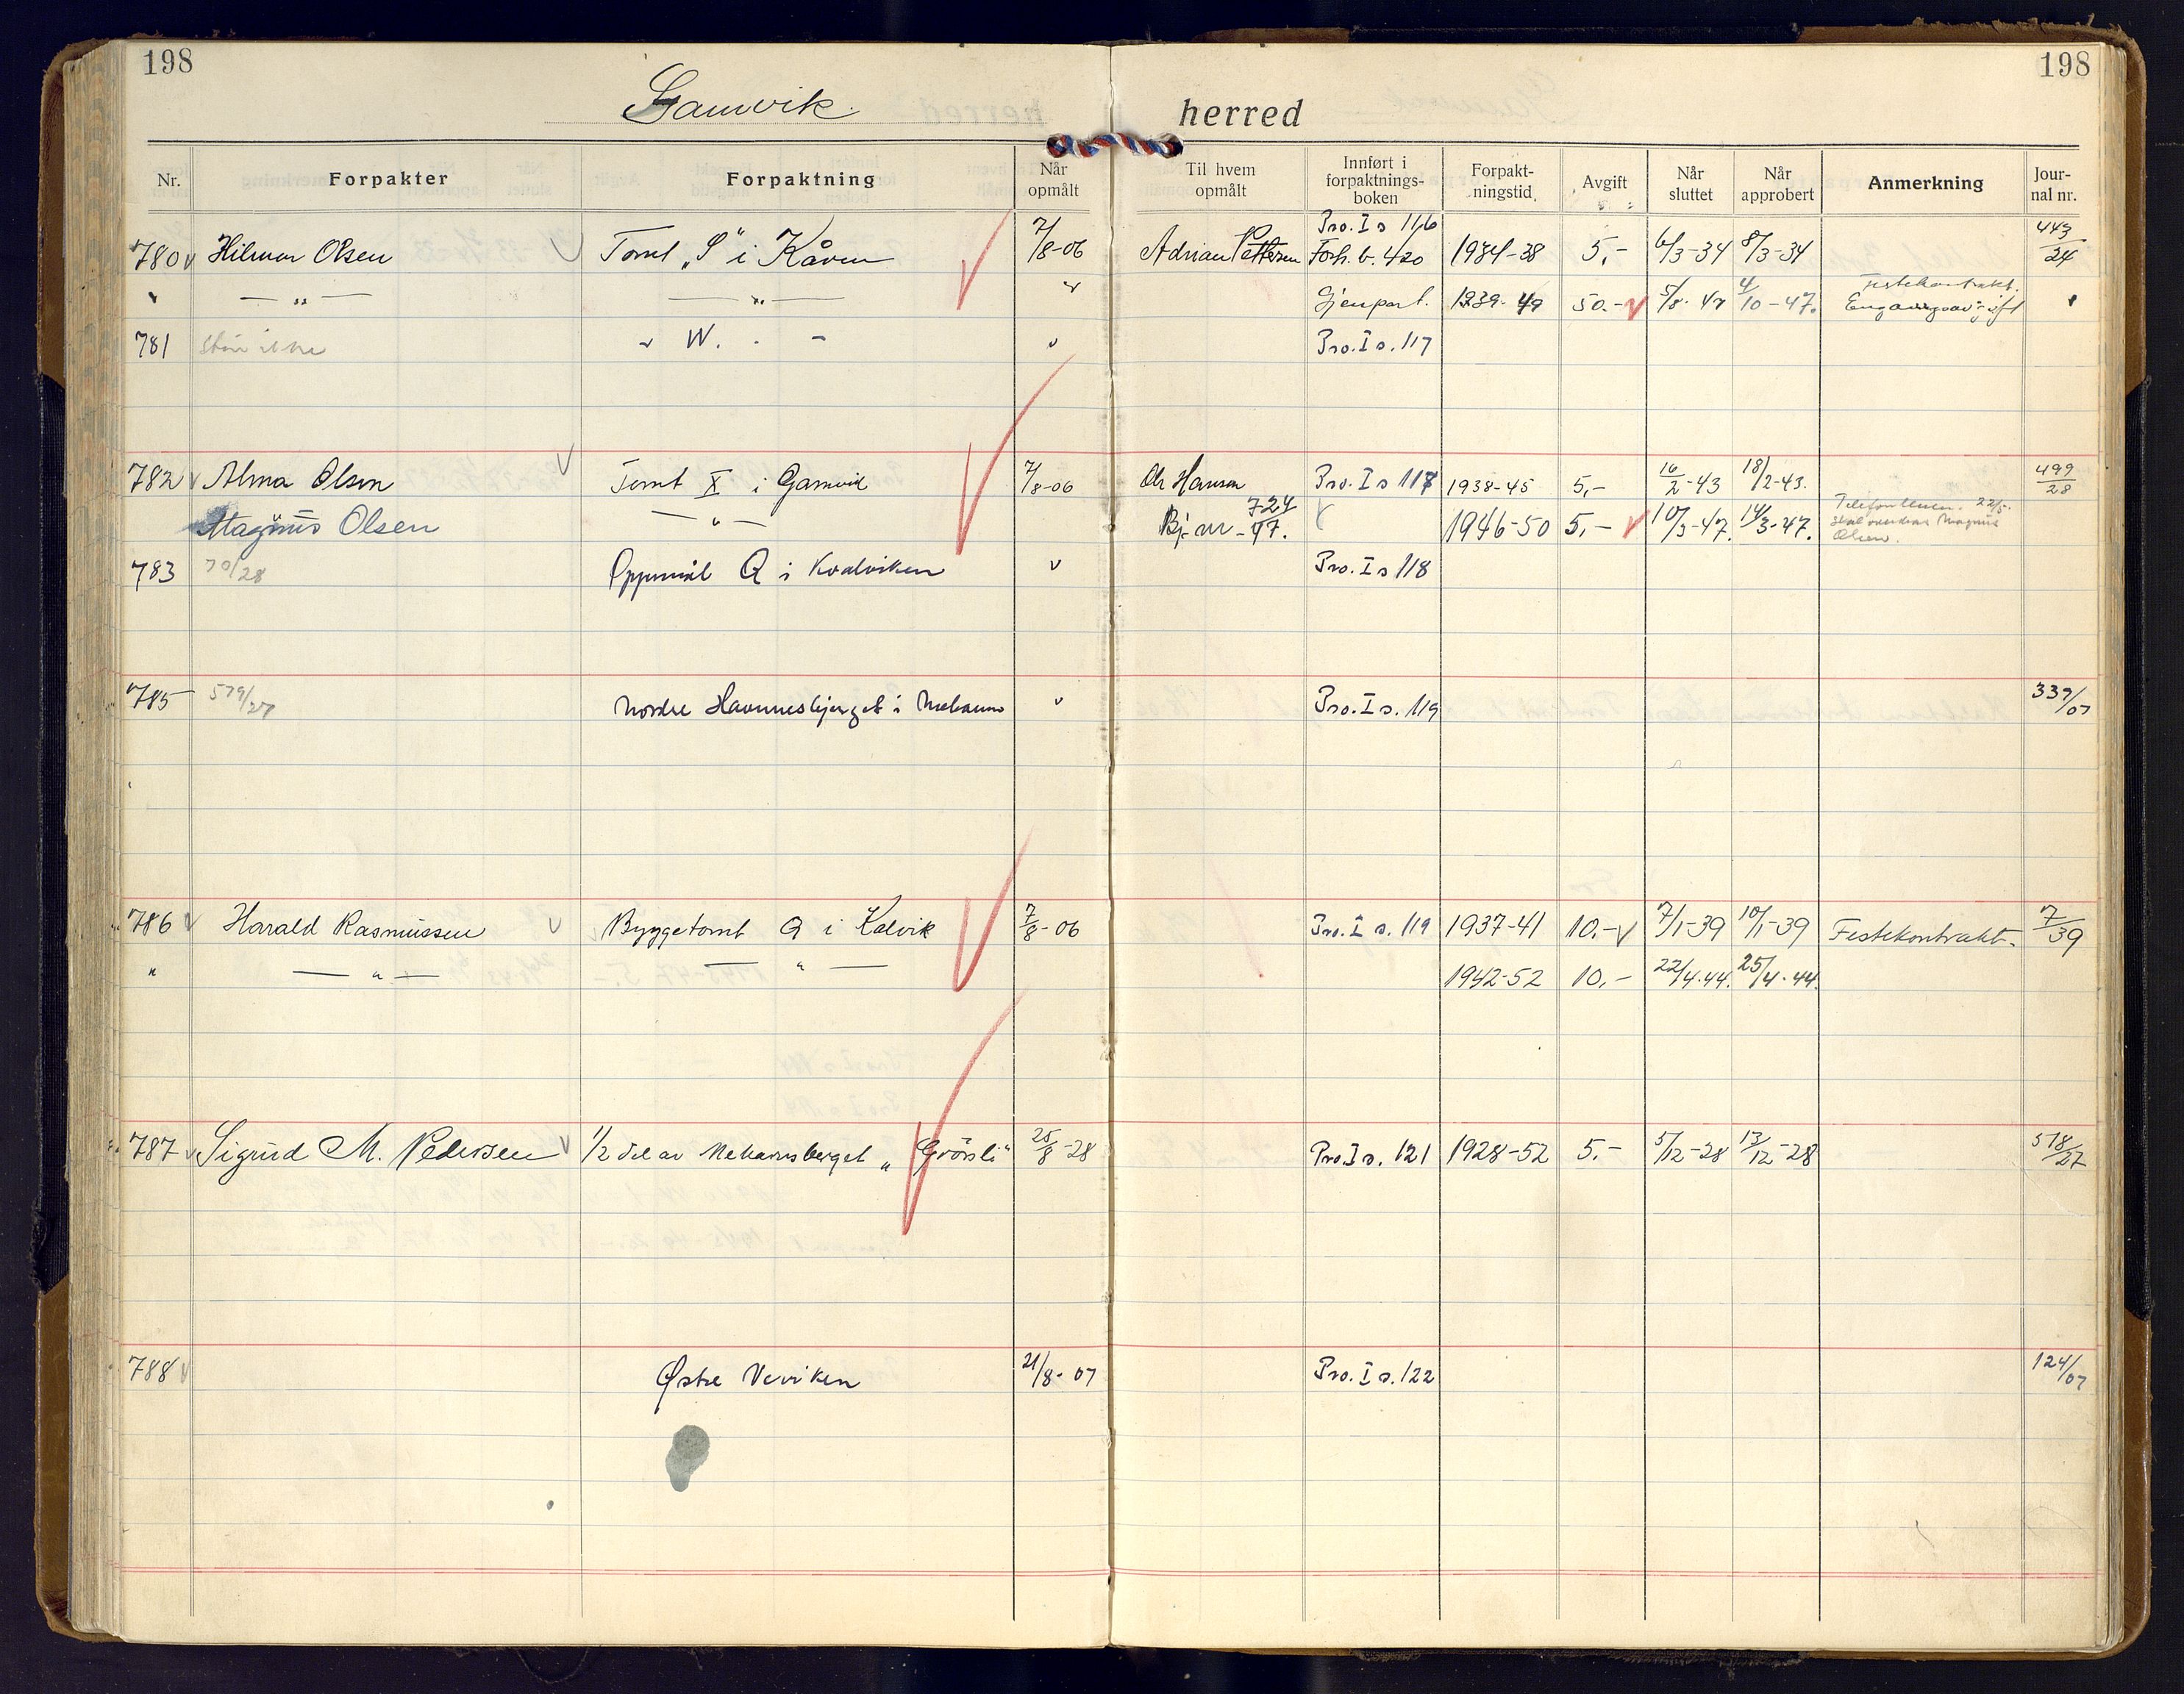 198
198
Gamvik herred
Nr. Forpakter Forpaktning Når opmålt Til hvem opmålt Innført i forpaktnings-boken Forpakt-ningstid Avgift Når sluttet Når approbert Anmerkning Jour-nal nr.
780 Hilmar Olsen Tomt „S" i Kåven 7/8-06 Adrian Pettersen Pro. I s 116 Forh. b. 420 1934-38 5,- 6/3-34 8/3-34 443/24
" — " — — " — " Gjenpart. 1939-49 50.- 5/8-47 4/10-47. Festekontrakt. Engangsavgift "
781 " W. - - " Pro. I s. 117
782 Alma Olsen Tomt X i Gamvik 7/8-06 Ole Hansen Pro. I s 117 1938-45 5,- 16/2-43 18/2-43. 499/28
Magnus Olsen — " — Bj. nr 724-47. 1946-50 5,- 10/3-47. 14/3-47. Magnus Olsen.
783 70/28 Oppmål Q i Kvalviken " Pro. I s 118
785 579/27 Nordre Havnnesbjerget i Mehamn " Pro. I s. 119 339/07
786 Harald Rasmussen Byggetomt Q i Kalvik 7/8-06 Pro. I s. 119 1937-41 10.- 7/1-39 10/1-39 Festekontrakt. 7/39
" — " — — " — 1942-52 10,- 22/4.44. 25/4-44.
787 Sigrid M. Pedersen 1/2 del av Mehamnsberget „Grönli" 25/8-28 Pro. I s. 121 1928-52 5.- 5/12-28 13/12-28 518/27
788 Østre Veviken 21/8-07 Pro. I s. 122 124/07